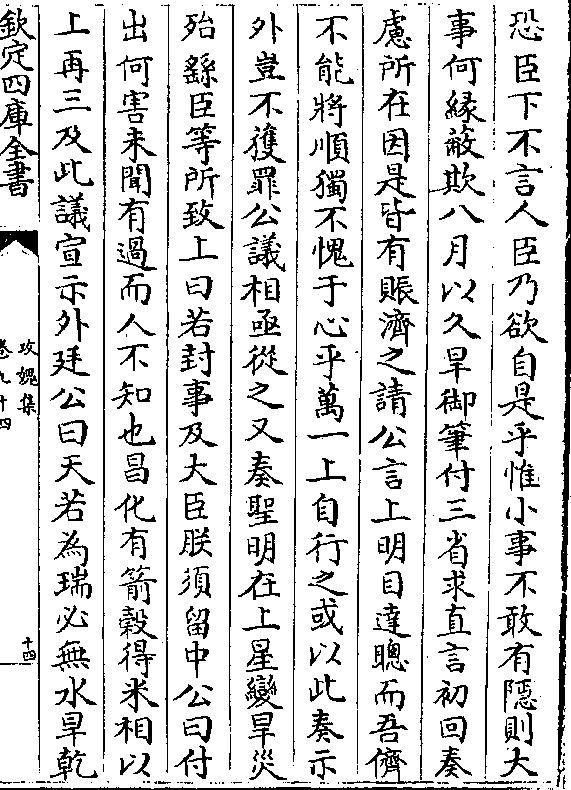 恐臣下不言人臣乃欲自是乎惟小事不敢有隱則大
事何緣蔽欺八月以久旱御筆付三省求直言初回奏
慮所在因是皆有賑濟之請公言上明目達聰而吾儕
不能將順獨不愧于心乎萬一上自行之或以此奏示
外豈不獲罪公議相亟從之又奏聖明在上星變旱災
殆繇臣等所致上曰若封事及大臣朕須留中公曰付
出何害未聞有過而人不知也昌化有箭穀得米相以
上再三及此議宣示外廷公曰天若為瑞必無水旱乾
欽定四庫全書
攻媿集
卷九十四
十四